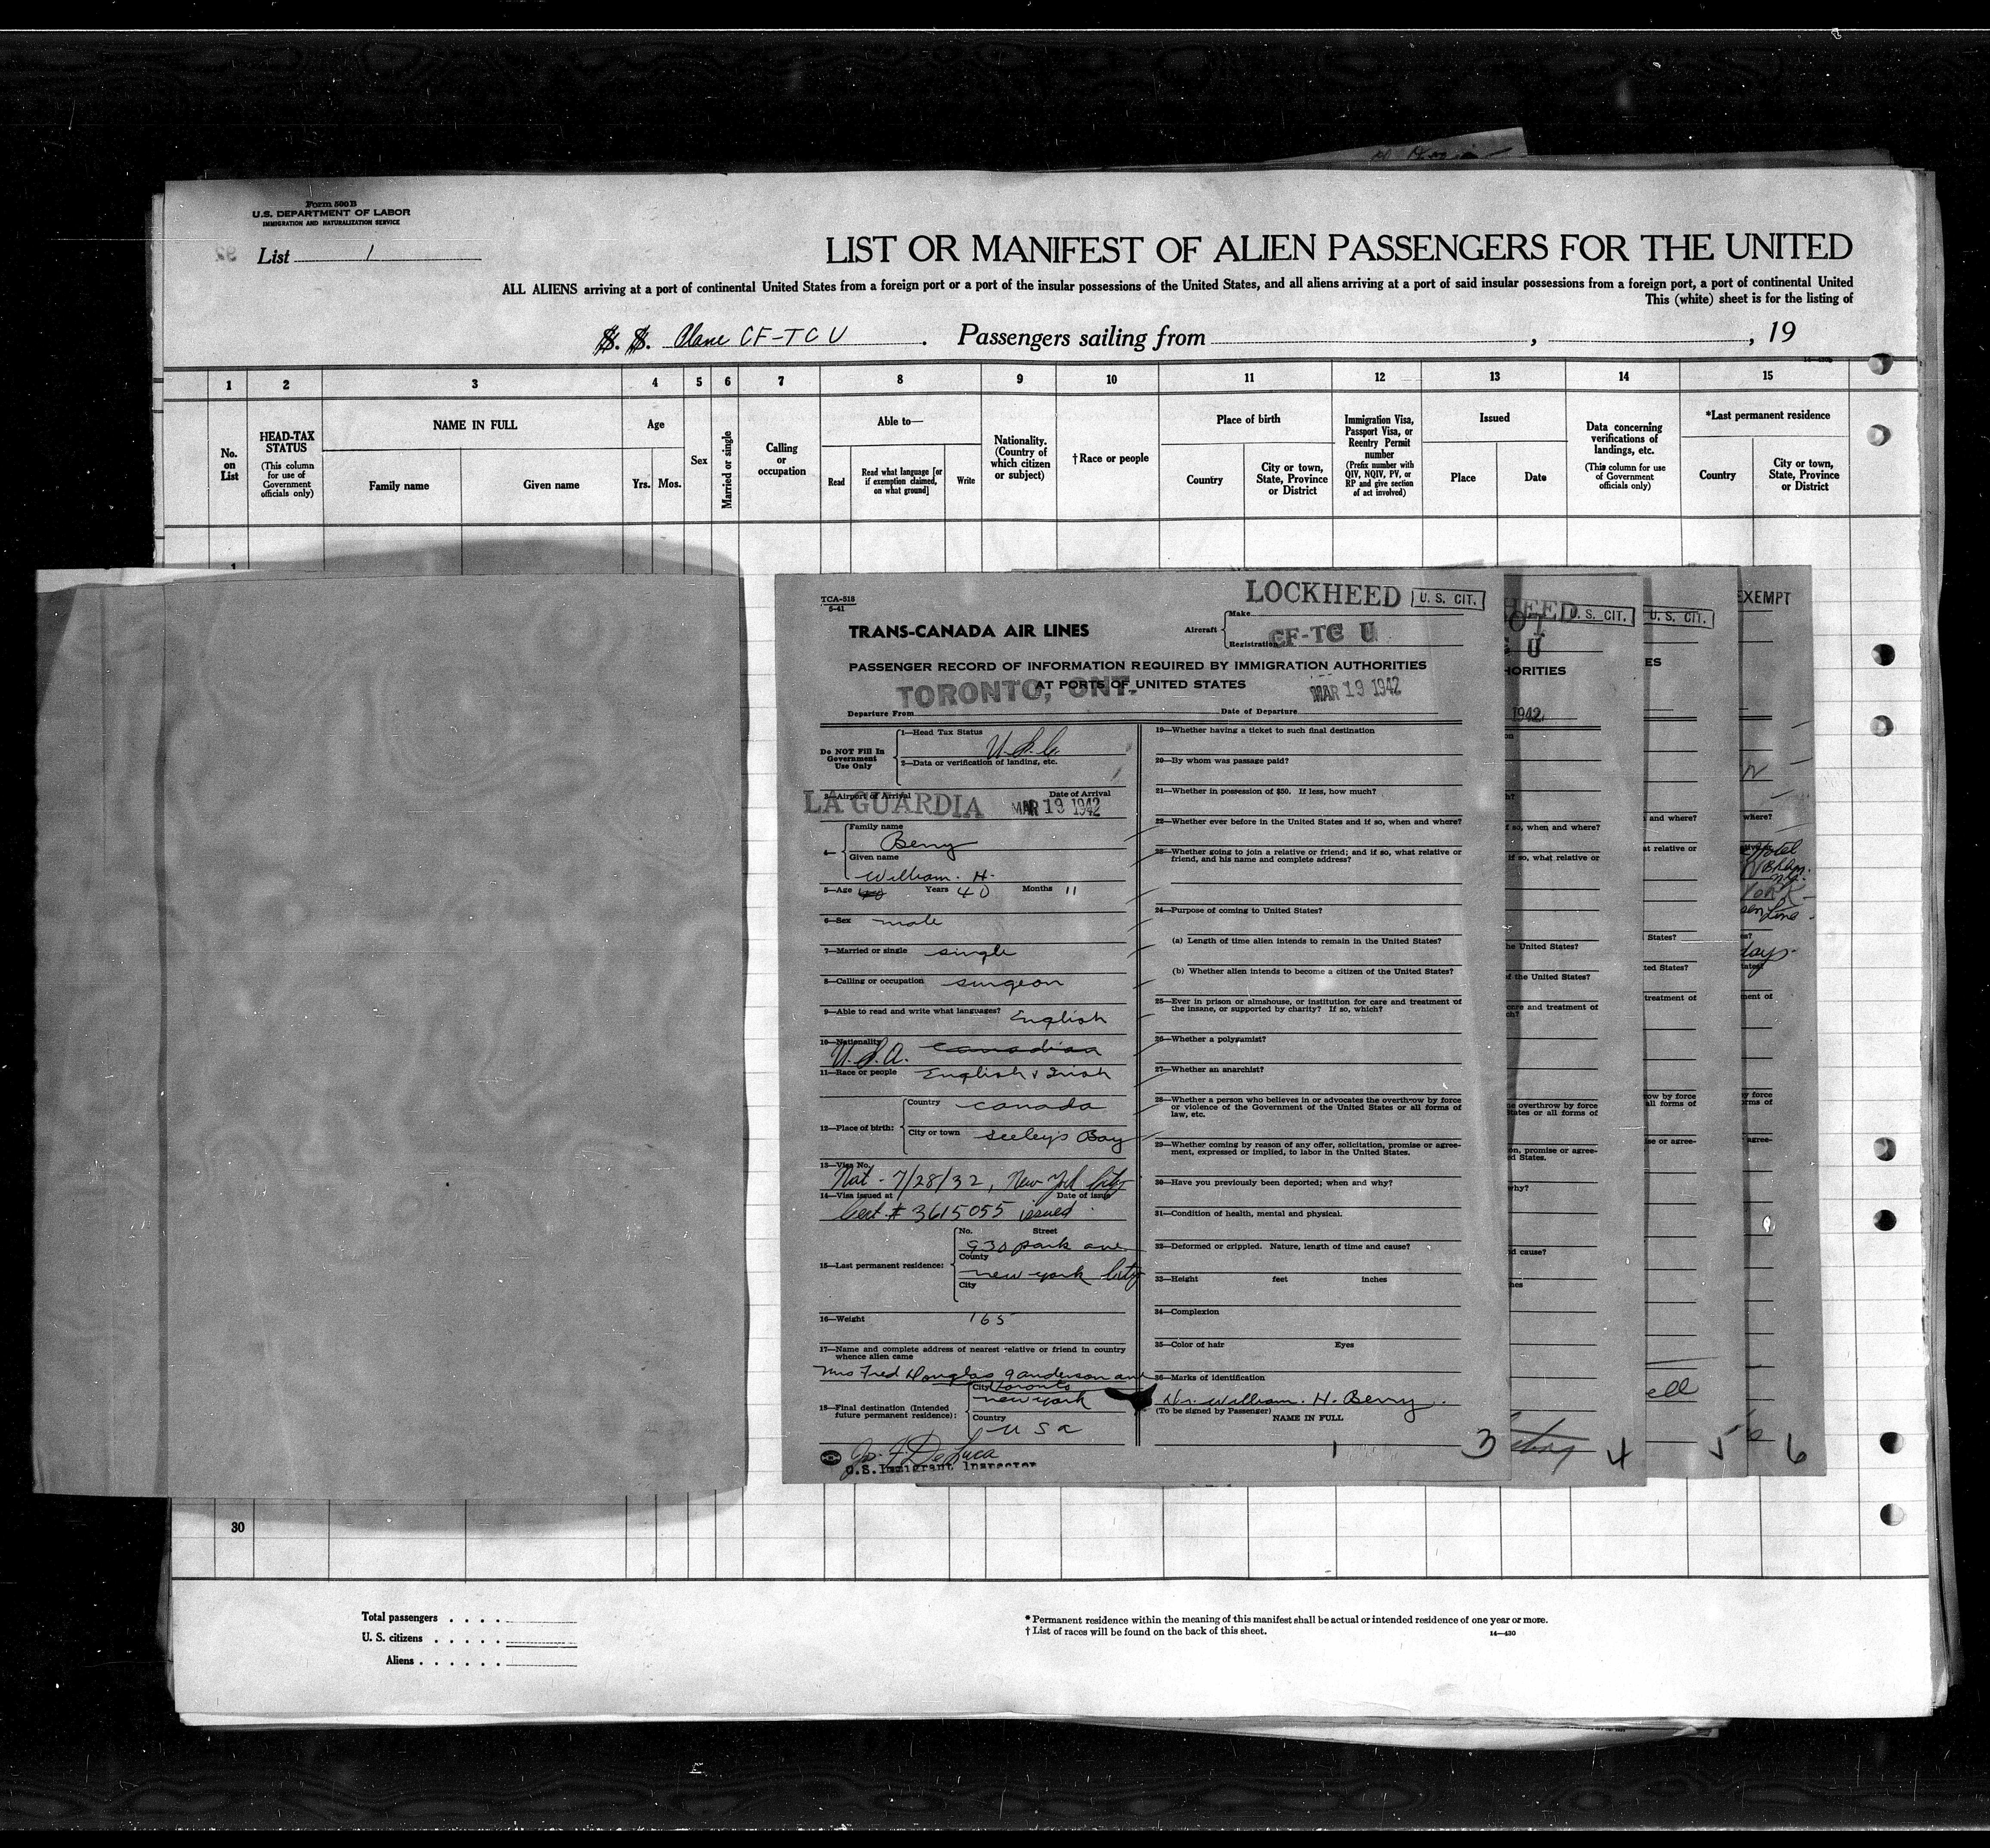 Form 500 B
U.S. DEPARTMENT OF LABOR
IMMIGRATION AND NATURALIZATION SERVICE
List 1
LIST OR MANIFEST OF ALIEN PASSENGERS FOR THE UNITED
ALL ALIENS arriving at a port of continental United States from a foreign port or a port of the insular possessions of the United States, and all aliens arriving at a port of said insular possessions from a foreign port, a port of continental United
This (white) sheet is for the listing of
S. S. Plane CF-TCU . Passengers sailing from , , 19
1 2 3 4 5 6 7 8 9 10 11 12 13 14 15
No. on List
HEAD-TAX STATUS
(This column for use of Government officials only)
NAME IN FULL
Family name Given name
Age
Yrs. Mos.
Sex
Married or single
Calling or occupation
Able to—
Read
Read what language [or if exemption claimed, on what ground]
Write
Nationality. (Country of which citizen or subject)
†Race or people
Place of birth
Country
City or town, State, Province or District
Immigration Visa, Passport Visa, or Reentry Permit number
(Prefix number with QIV, NQIV, PV, or RP and give section of act involved)
Issued
Place Date
Data concerning verifications of landings, etc.
(This column for use of Government officials only)
*Last permanent residence
Country
City or town, State, Province or District
TCA-518
5-41
LOCKHEED U. S. CIT.
TRANS-CANADA AIR LINES
Aircraft
Make
Registration CF-TC U
PASSENGER RECORD OF INFORMATION REQUIRED BY IMMIGRATION AUTHORITIES
AT PORTS OF UNITED STATES
TORONTO, ONT. MAR 19 1942
Departure From Date of Departure
Do NOT Fill In Government Use Only
1—Head Tax Status U.S.C.
2—Data or verification of landing, etc.
3—Airport of Arrival Date of Arrival
LA GUARDIA MAR 19 1942
4—
Family name
Berry
Given name
William. H.
5—Age Years 40 Months 11
6—Sex male
7—Married or single single
8—Calling or occupation surgeon
9—Able to read and write what languages? English
10—Nationality U.S.A. Canadian
11—Race or people English & Irish
12—Place of birth:
Country Canada
City or town Seeley's Bay
13—Visa No.
Nat - 7/28/32, New York City
14—Visa issued at Date of issue
Cert. # 3615055 issued
15—Last permanent residence:
No. Street
930 park ave.
County
new york City
City
16—Weight 165
17—Name and complete address of nearest relative or friend in country whence alien came
Mrs Fred Douglas 9 anderson ave
City Toronto
new york
18—Final destination (Intended future permanent residence):
Country
USA
Jo. F. De Luca
U.S. Immigrant Inspector
19—Whether having a ticket to such final destination
20—By whom was passage paid?
21—Whether in possession of $50. If less, how much?
22—Whether ever before in the United States and if so, when and where?
23—Whether going to join a relative or friend; and if so, what relative or friend, and his name and complete address?
24—Purpose of coming to United States?
(a) Length of time alien intends to remain in the United States?
(b) Whether alien intends to become a citizen of the United States?
25—Ever in prison or almshouse, or institution for care and treatment of the insane, or supported by charity? If so, which?
26—Whether a polygamist?
27—Whether an anarchist?
28—Whether a person who believes in or advocates the overthrow by force or violence of the Government of the United States or all forms of law, etc.
29—Whether coming by reason of any offer, solicitation, promise or agreement, expressed or implied, to labor in the United States.
30—Have you previously been deported; when and why?
31—Condition of health, mental and physical.
32—Deformed or crippled. Nature, length of time and cause?
33—Height feet inches
34—Complexion
35—Color of hair Eyes
36—Marks of identification
Dr. William. H. Berry.
(To be signed by Passenger)
NAME IN FULL
1 3 4 5 6
U. S. CIT. U. S. CIT. EXEMPT
30
Total passengers . . . .
U. S. citizens . . . . .
Aliens . . . . . .
* Permanent residence within the meaning of this manifest shall be actual or intended residence of one year or more.
† List of races will be found on the back of this sheet.
14—430